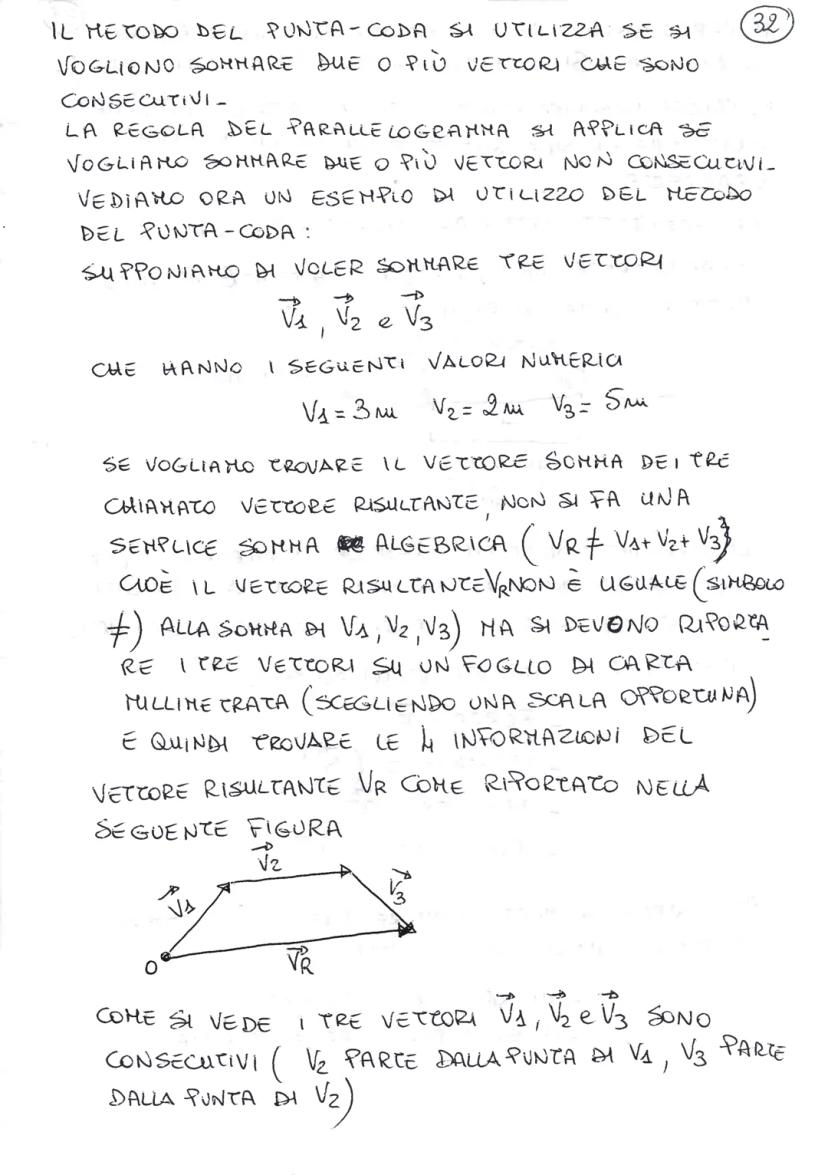 32
IL METODO DEL PUNTA-CODA SI UTILIZZA SE SI
VOGLIONO SOMMARE DUE O PIÙ VETTORI CHE SONO
CONSECUTIVI_
LA REGOLA DEL PARALLELOGRAMMA SI APPLICA SE
VOGLIAMO SOMMARE DUE O PIÙ VETTORI NON CONSECUTIVI_
VEDIAMO ORA UN ESEMPIO DI UTILIZZO DEL METODO
DEL PUNTA-CODA:
SUPPONIAMO DI VOLER SOMMARE TRE VETTORI
V⃗1, V⃗2 e V⃗3
CHE HANNO I SEGUENTI VALORI NUMERICI
V1 = 3m V2 = 2m V3 = 5m
SE VOGLIAMO TROVARE IL VETTORE SOMMA DEI TRE
CHIAMATO VETTORE RISULTANTE, NON SI FA UNA
SEMPLICE SOMMA ALGEBRICA (VR ≠ V1+V2+V3)
CIOÈ IL VETTORE RISULTANTE VR NON È UGUALE (SIMBOLO
≠) ALLA SOMMA DI V1, V2, V3) MA SI DEVONO RIPORTA_
RE I TRE VETTORI SU UN FOGLIO DI CARTA
MILLIMETRATA (SCEGLIENDO UNA SCALA OPPORTUNA)
E QUINDI TROVARE LE 4 INFORMAZIONI DEL
VETTORE RISULTANTE VR COME RIPORTATO NELLA
SEGUENTE FIGURA
V⃗2
V⃗1
V⃗3
O
V⃗R
COME SI VEDE I TRE VETTORI V⃗1, V⃗2 e V⃗3 SONO
CONSECUTIVI (V2 PARTE DALLA PUNTA DI V1, V3 PARTE
DALLA PUNTA DI V2)